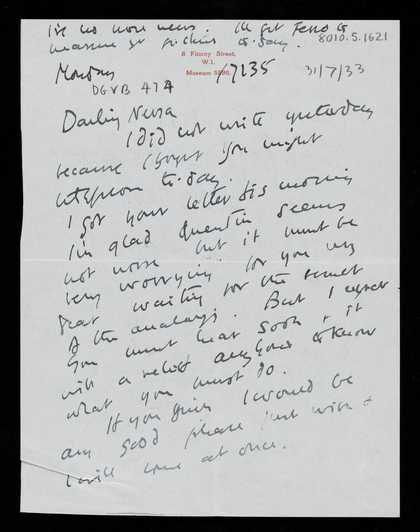 I've no more news. I'll get
measure yr to-day. 8010.5.1621
8 Fitzroy Street,
W.1.
Museum
Monday 31/7/33
DG VB 474
Darling Nessa
I did not write yesterday
because I thought you might
telephone to-day.
I got your letter this morning
I'm glad Quentin seems
not worse but it must be
very worrying for you my
dear waiting for the result
of the analasys. But I expect
you must hear soon & it
will a relief anyhow to know
what you must do.
If you think I would be
any good please just wire &
I will come at once.